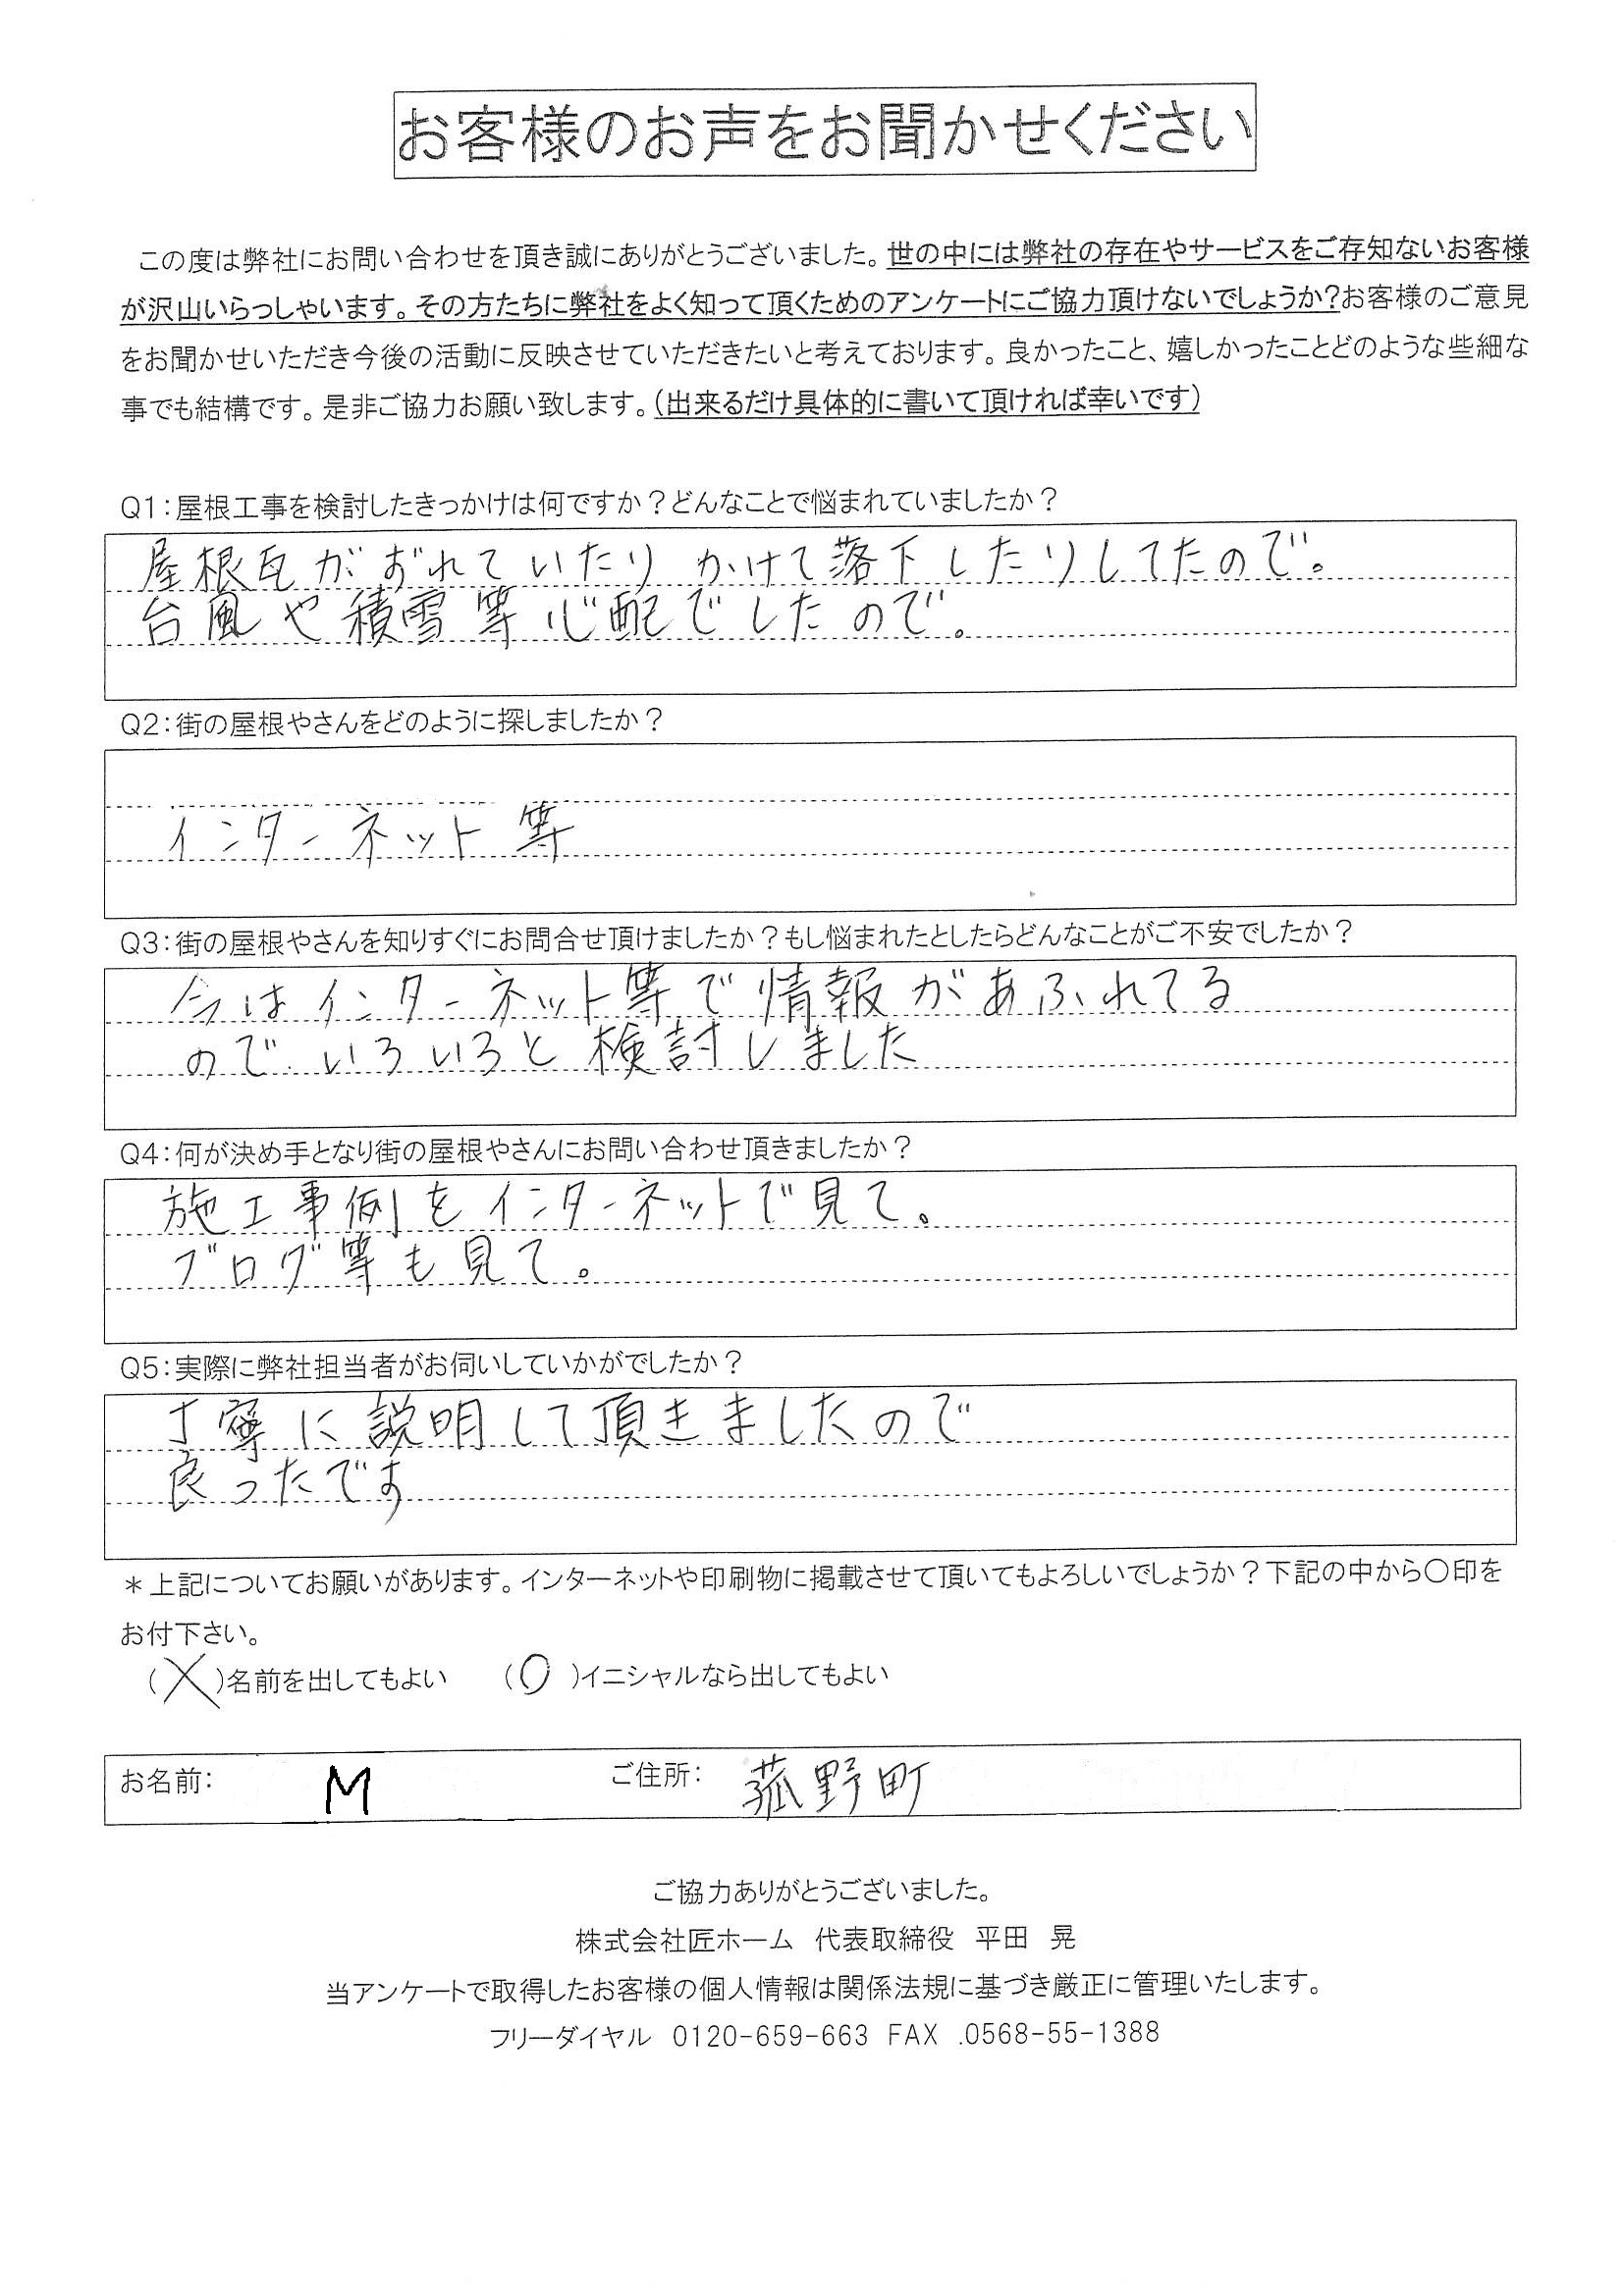 お客様のお声をお聞かせください
この度は弊社にお問い合わせを頂き誠にありがとうございました。世の中には弊社の存在やサービスをご存知ないお客様
が沢山いらっしゃいます。その方たちに弊社をよく知って頂くためのアンケートにご協力頂けないでしょうか?お客様のご意見
をお聞かせいただき今後の活動に反映させていただきたいと考えております。良かったこと、嬉しかったことどのような些細な
事でも結構です。是非ご協力お願い致します。(出来るだけ具体的に書いて頂ければ幸いです)
Q1:屋根工事を検討したきっかけは何ですか?どんなことで悩まれていましたか?
屋根瓦がおれていたりかけて落下したりしてたので。
台風や積雪等心配でしたので。
Q2:街の屋根やさんをどのように探しましたか?
インターネット等
Q3:街の屋根やさんを知りすぐにお問合せ頂けましたか?もし悩まれたとしたらどんなことがご不安でしたか?
今はインターネット等で情報があふれてる
のでいろいろと検討しました
Q4:何が決め手となり街の屋根やさんにお問い合わせ頂きましたか?
施工事例をインターネットで見て。
ブログ等も見て。
Q5:実際に弊社担当者がお伺いしていかがでしたか?
丁寧に説明して頂きましたので
良ったです
*上記についてお願いがあります。インターネットや印刷物に掲載させて頂いてもよろしいでしょうか?下記の中から〇印を
お付下さい。
(X)名前を出してもよい (O)イニシャルなら出してもよい
お名前: M ご住所: 菰野町
ご協力ありがとうございました。
株式会社匠ホーム 代表取締役 平田 晃
当アンケートで取得したお客様の個人情報は関係法規に基づき厳正に管理いたします。
フリーダイヤル 0120-659-663 FAX .0568-55-1388